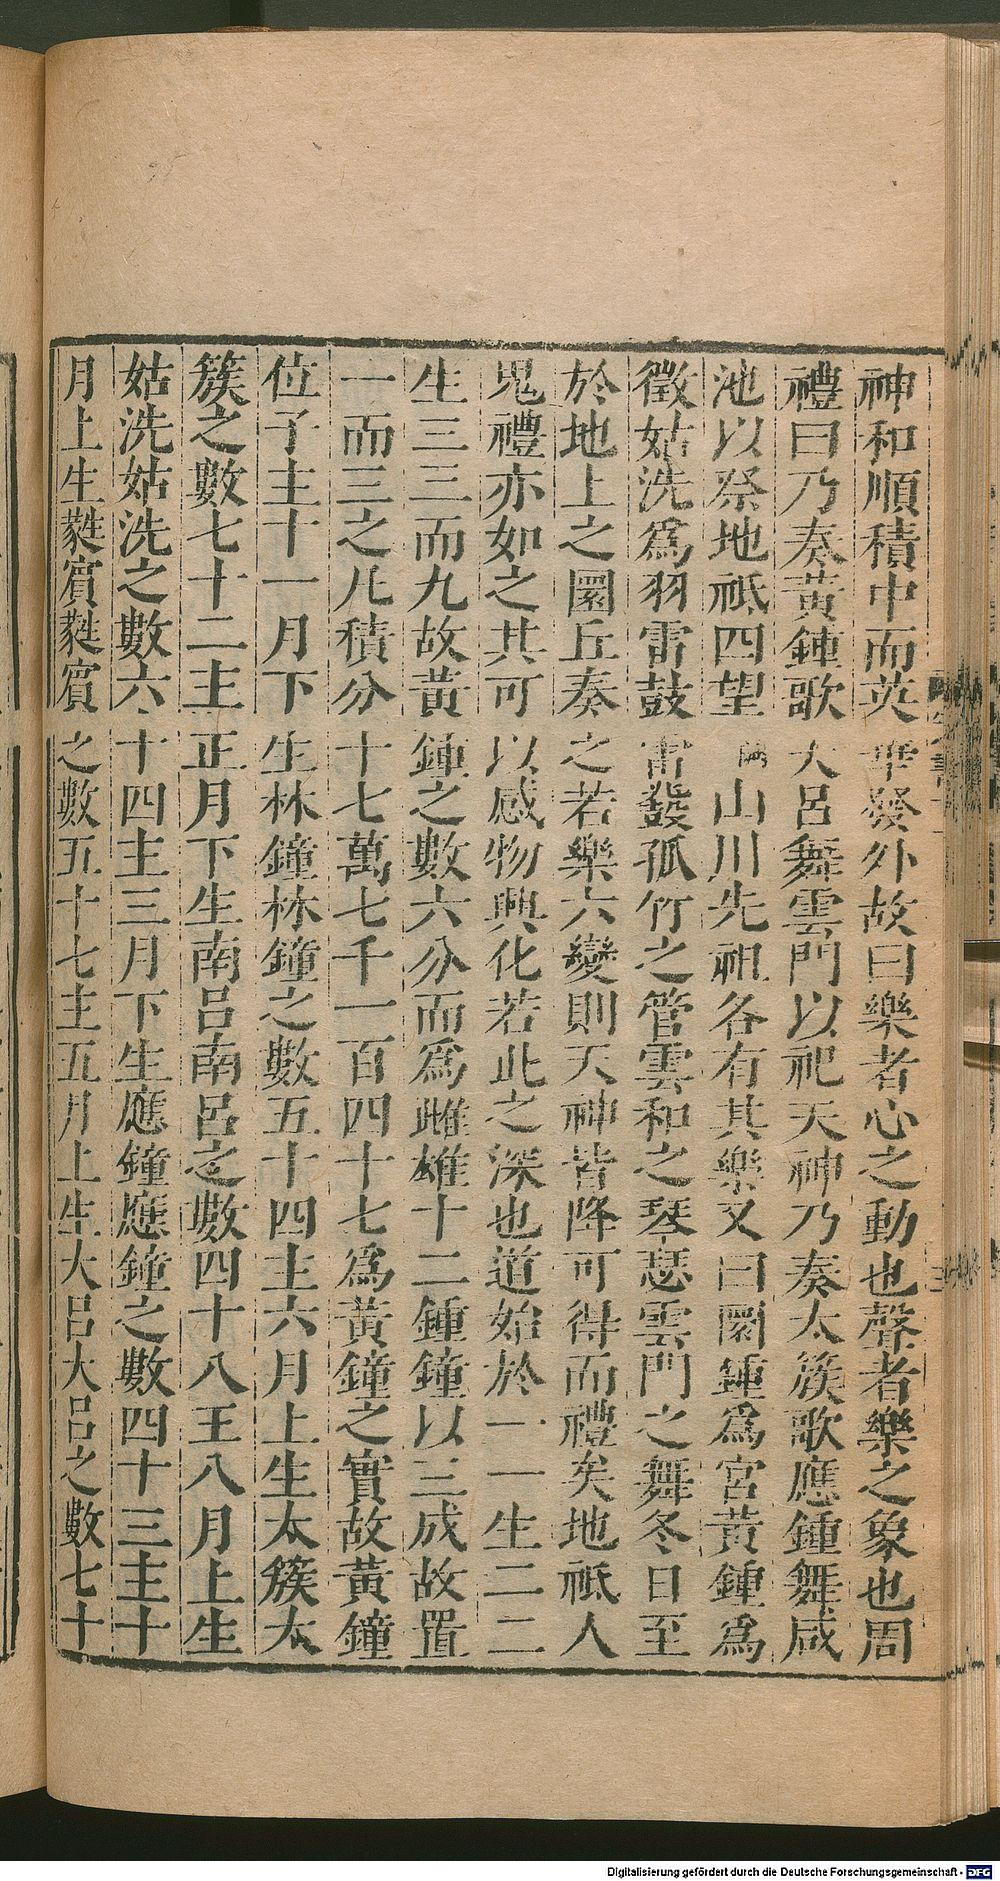 神和順積中而英華發外故曰樂者心之動也聲者樂之象也周
禮曰乃奏黃鍾歌大呂舞雲門以祀天神乃奏太簇歌應鍾舞咸
池以祭地祇四望 山川先祖各有其樂又曰圜鍾爲宮黃鍾爲
徵姑洗爲羽雷鼓雷鼗孤竹之管雲和之琴瑟雲門之舞冬日至
於地上之圜丘奏之若樂六變則天神皆降可得而禮矣地祇人
鬼禮亦如之其可以感物興化若此之深也道始於一一生二二
生三三而九故黃鍾之數六分而爲雌雄十二鍾鐘以三成故置
一而三之凡積分十七萬七千一百四十七爲黃鐘之實故黃鐘
位子主十一月下生林鐘林鐘之數五十四主六月上生太簇太
簇之數七十二主正月下生南呂南呂之數四十八王八月上生
姑洗姑洗之數六十四主三月下生應鐘應鐘之數四十三主十
月上生蕤賓蕤賓之數五十七主五月上生大呂大呂之數七十
Digitalisierung gefördert durch die Deutsche Forschungsgemeinschaft - DFG